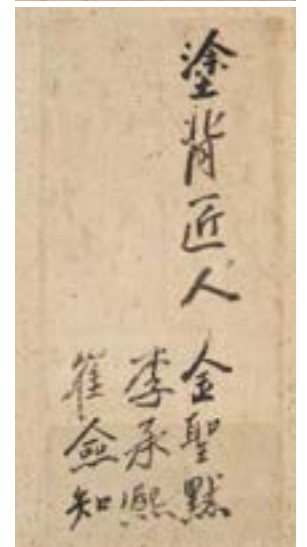 塗背匠人 金聖默
李承熙
崔僉知